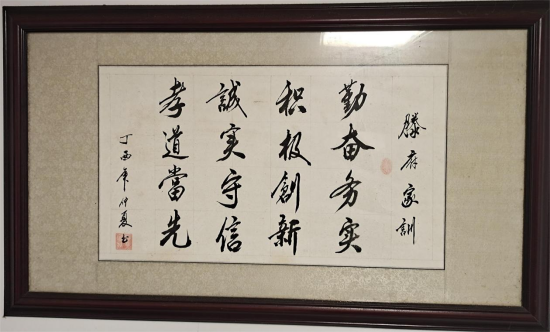 滕府家訓
勤奋务实
积极創新
誠实守信
孝道當先
丁酉年仲夏書